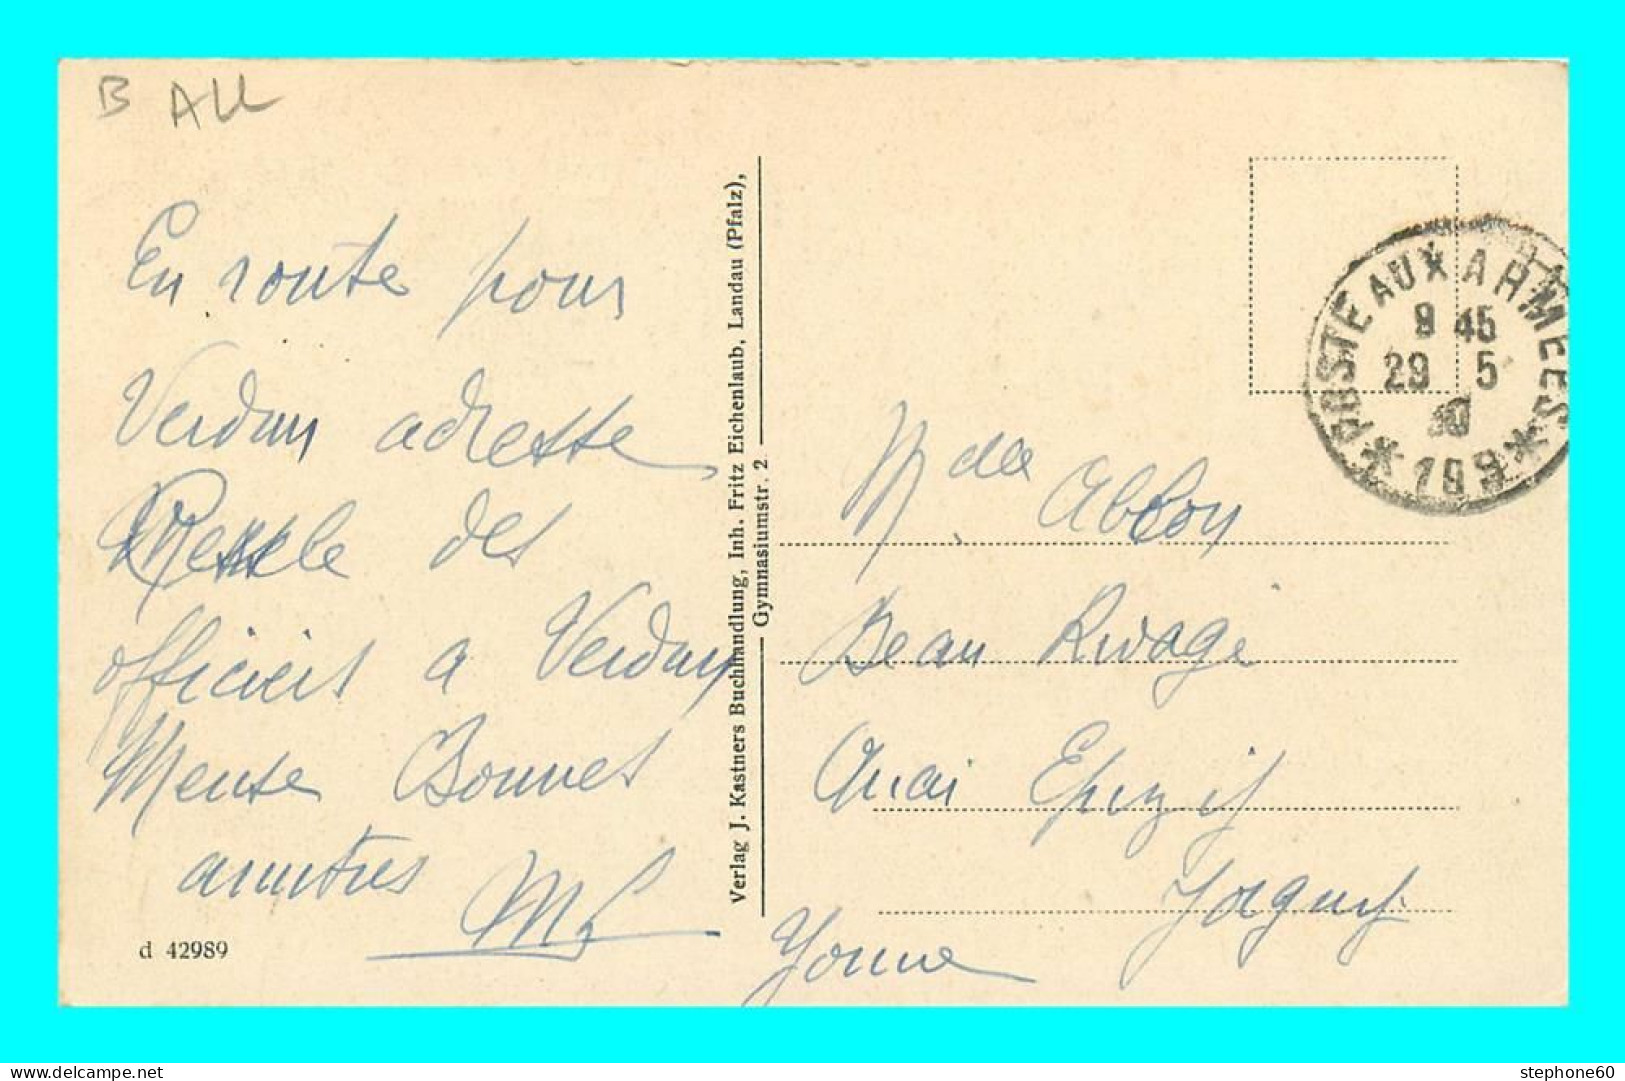 B ALL
En route pour
Verdun adresse
des
officiers a Verdun
Meuse Bonnes
amitiés
d 42989
Verlag J. Kastners Buchhandlung, Inh. Fritz Eichenlaub, Landau (Pfalz),
Gymnasiumstr. 2
POSTE AUX ARMEES
9 45
29 5
30
* 199 *
Abbon
Beau Rivage
Quai
Joigny
Yonne
stephone60